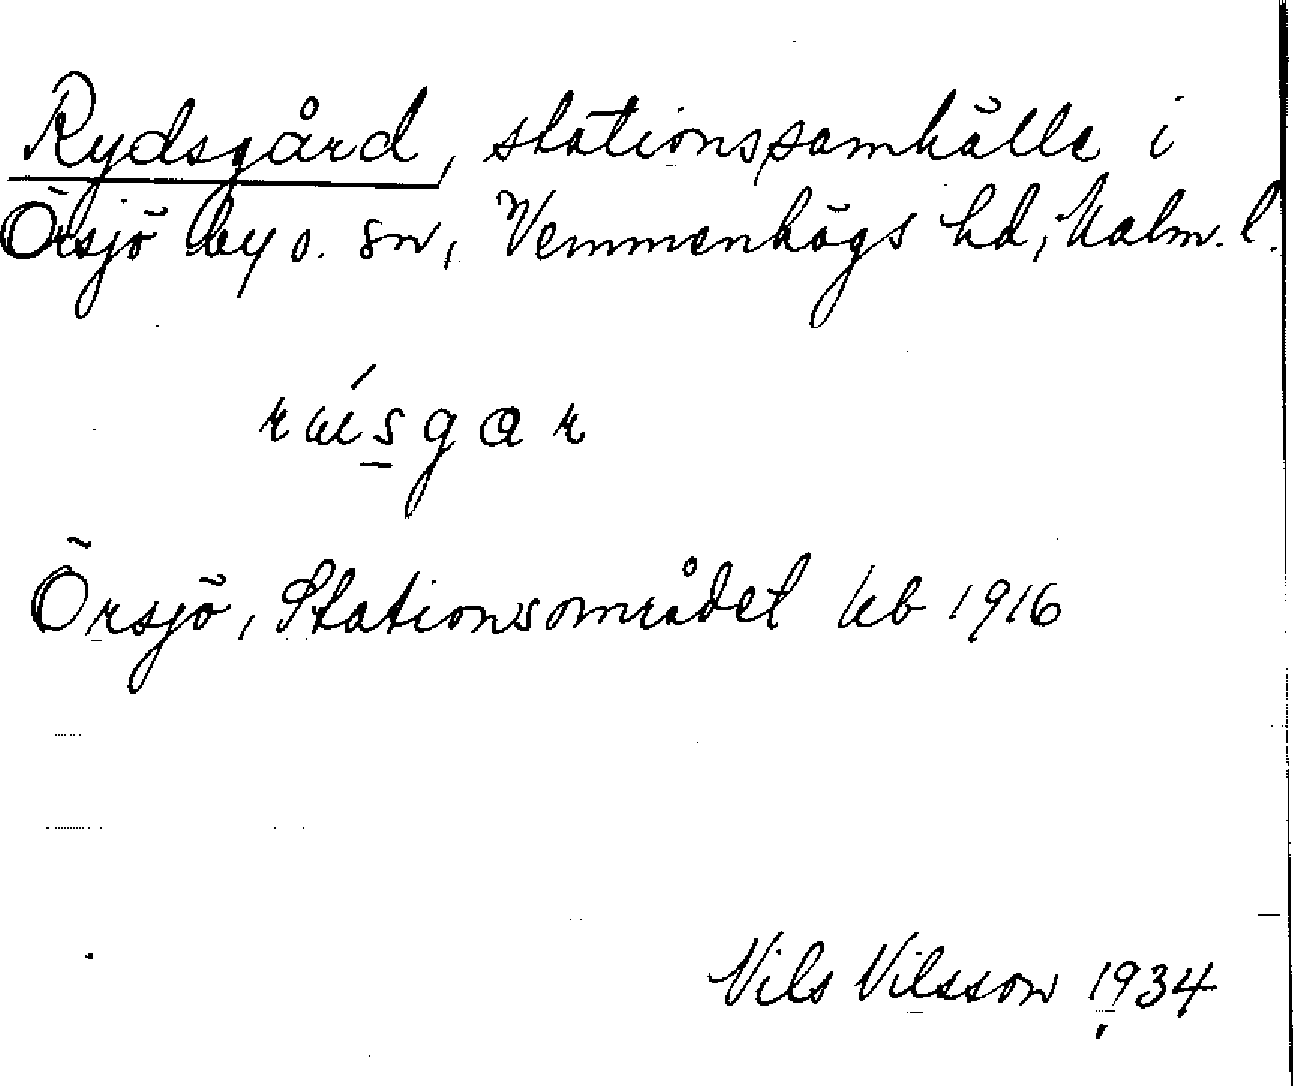 Rydsgård, stationssamhälle i
Örsjö by o. sn, Vemmenhögs hd, Malm. l.
Örsjö, Stationsområdet Ub 1916
Nils Nilsson 1934